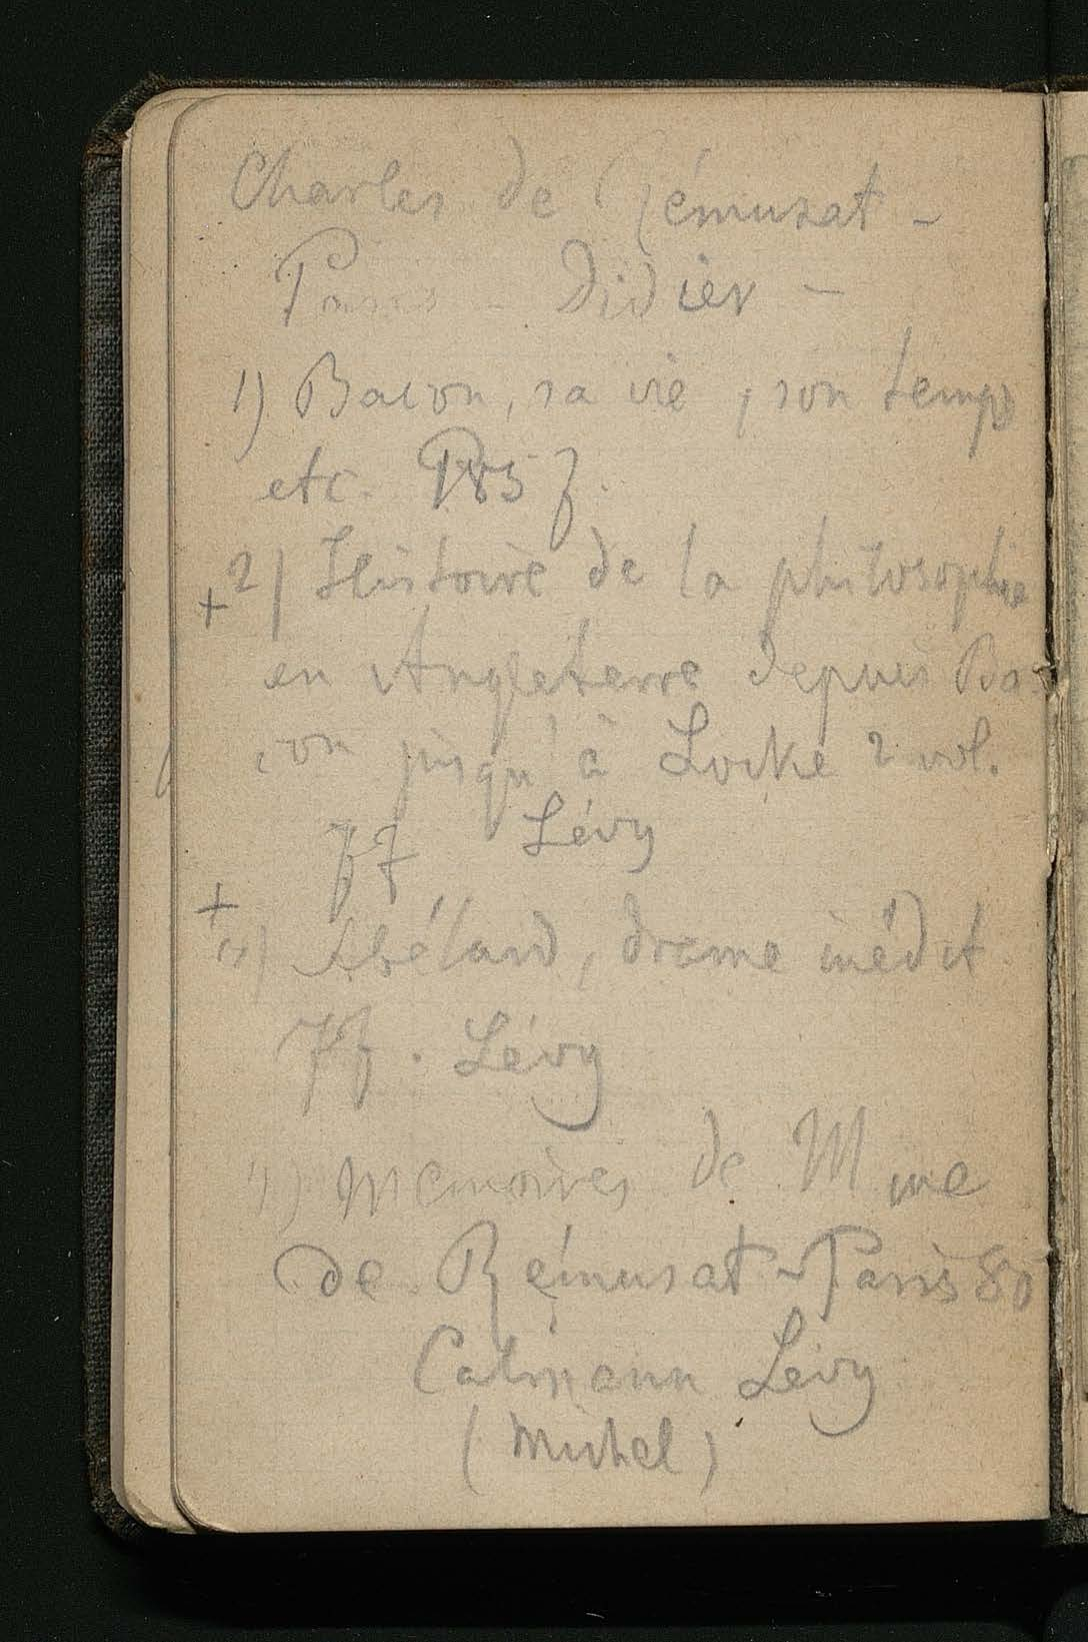 Charles de Rémusat –
Paris – Didier –
1) Bacon, sa vie, son temps
etc. f.
+ 2) Histoire de la philosophie
en Angleterre depuis Ba-
con jusqu'à Locke 2 vol.
Lévy
+ 3) Abélard, drame inédit
7 f. Lévy
4) Memoires de Mme
de Rémusat – Paris 80
Calmann Lévy
(Michel)